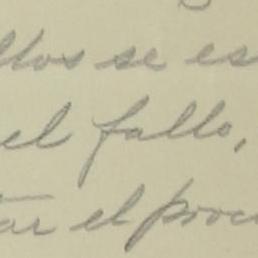 llos se es
el fallo,
tar el proce